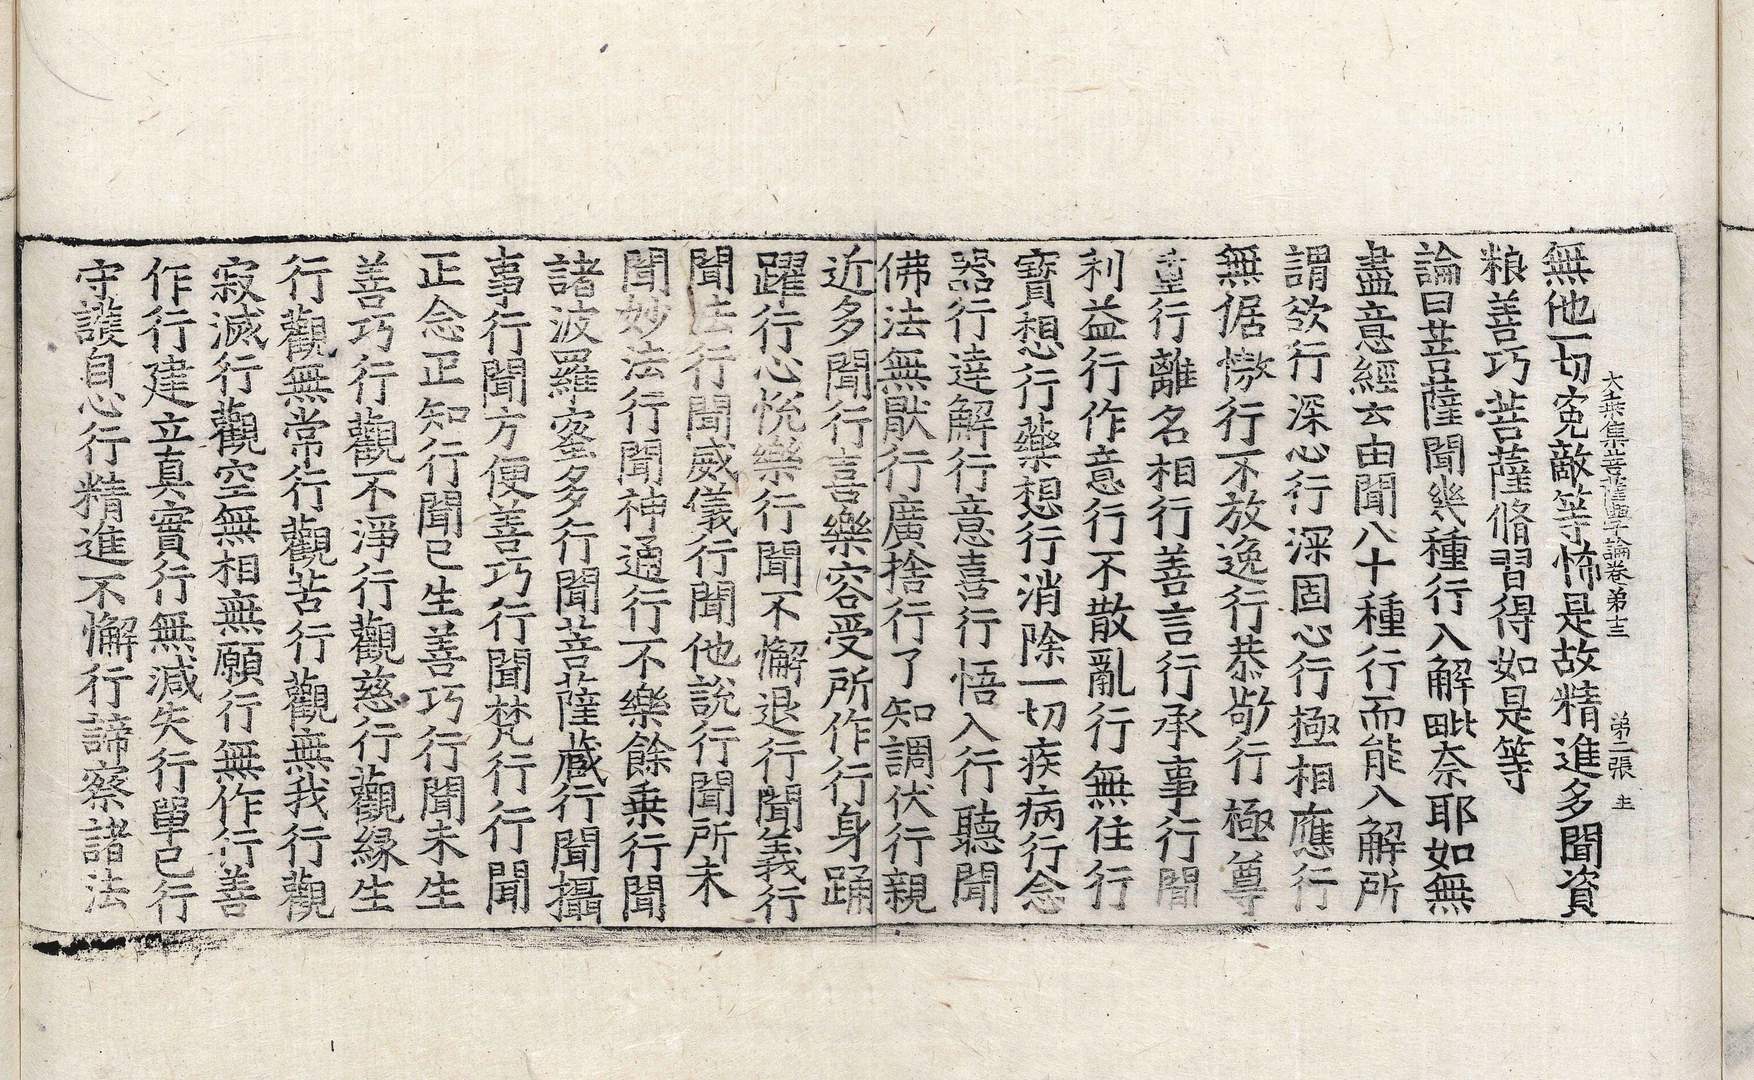 大乗集菩薩學論卷苐十三　苐二張　主
無他一切寃敵等怖是故精進多聞資
粮善巧菩薩脩習得如是等
論曰菩薩聞幾種行入解毗奈耶如無
盡意經云由聞八十種行而能入解所
謂欲行深心行深固心行極相應行
無倨慠行不放逸行恭敬行極尊
重行離名相行善言行承事行聞
利益行作意行不散亂行無住行
寶想行藥想行消除一切疾病行念
器行達解行意喜行悟入行聽聞
佛法無猒行廣捨行了知調伏行親
近多聞行喜樂容受所作行身踊
躍行心悅樂行聞不懈退行聞義行
聞法行聞威儀行聞他說行聞所未
聞妙法行聞神通行不樂餘乗行聞
諸波羅蜜多行聞菩薩藏行聞攝
事行聞方便善巧行聞梵行行聞
正念正知行聞已生善巧行聞未生
善巧行觀不淨行觀慈行觀緣生
行觀無常行觀苦行觀無我行觀
寂滅行觀空無相無願行無作行善
作行建立真實行無減失行單己行
守護自心行精進不懈行諦察諸法